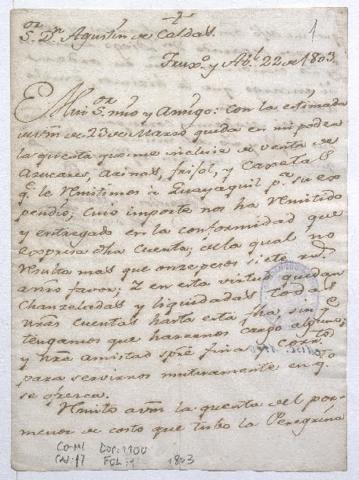 1
S.or D.n Agustin de Caldas.
Trux.o y Ab.l 22 de 1803.
Mui S.or mio y Amigo: con la estimada
de Vm de 23 de Marzo queda en mi poder
la quenta que me incluie de venta de
Azucares, Arinas, frisol, y
q.e le Remitimos a Guayaquil p.a su ex
pendio; cuio importe nos ha Remitido
y entregado en la conformidad que
expresa dha Cuenta; de la qual no
resulta mas que onze pesos siete r.s
a mio favor; Y en esta virtud quedan
Chanzeladas y liquidadas todas
nras cuentas hasta esta fha, sin q.e
tengamos que hazernos cargo alguno;
y nra amistad spre fina y corr.te
para servirnos mutuamente en q.to
se ofresca.
Remito a Vm la quenta del por
menor de costo que tubo la Peregrina
CO-MI
CAJ: 17
DOC: 1700
FOL: 1
1803